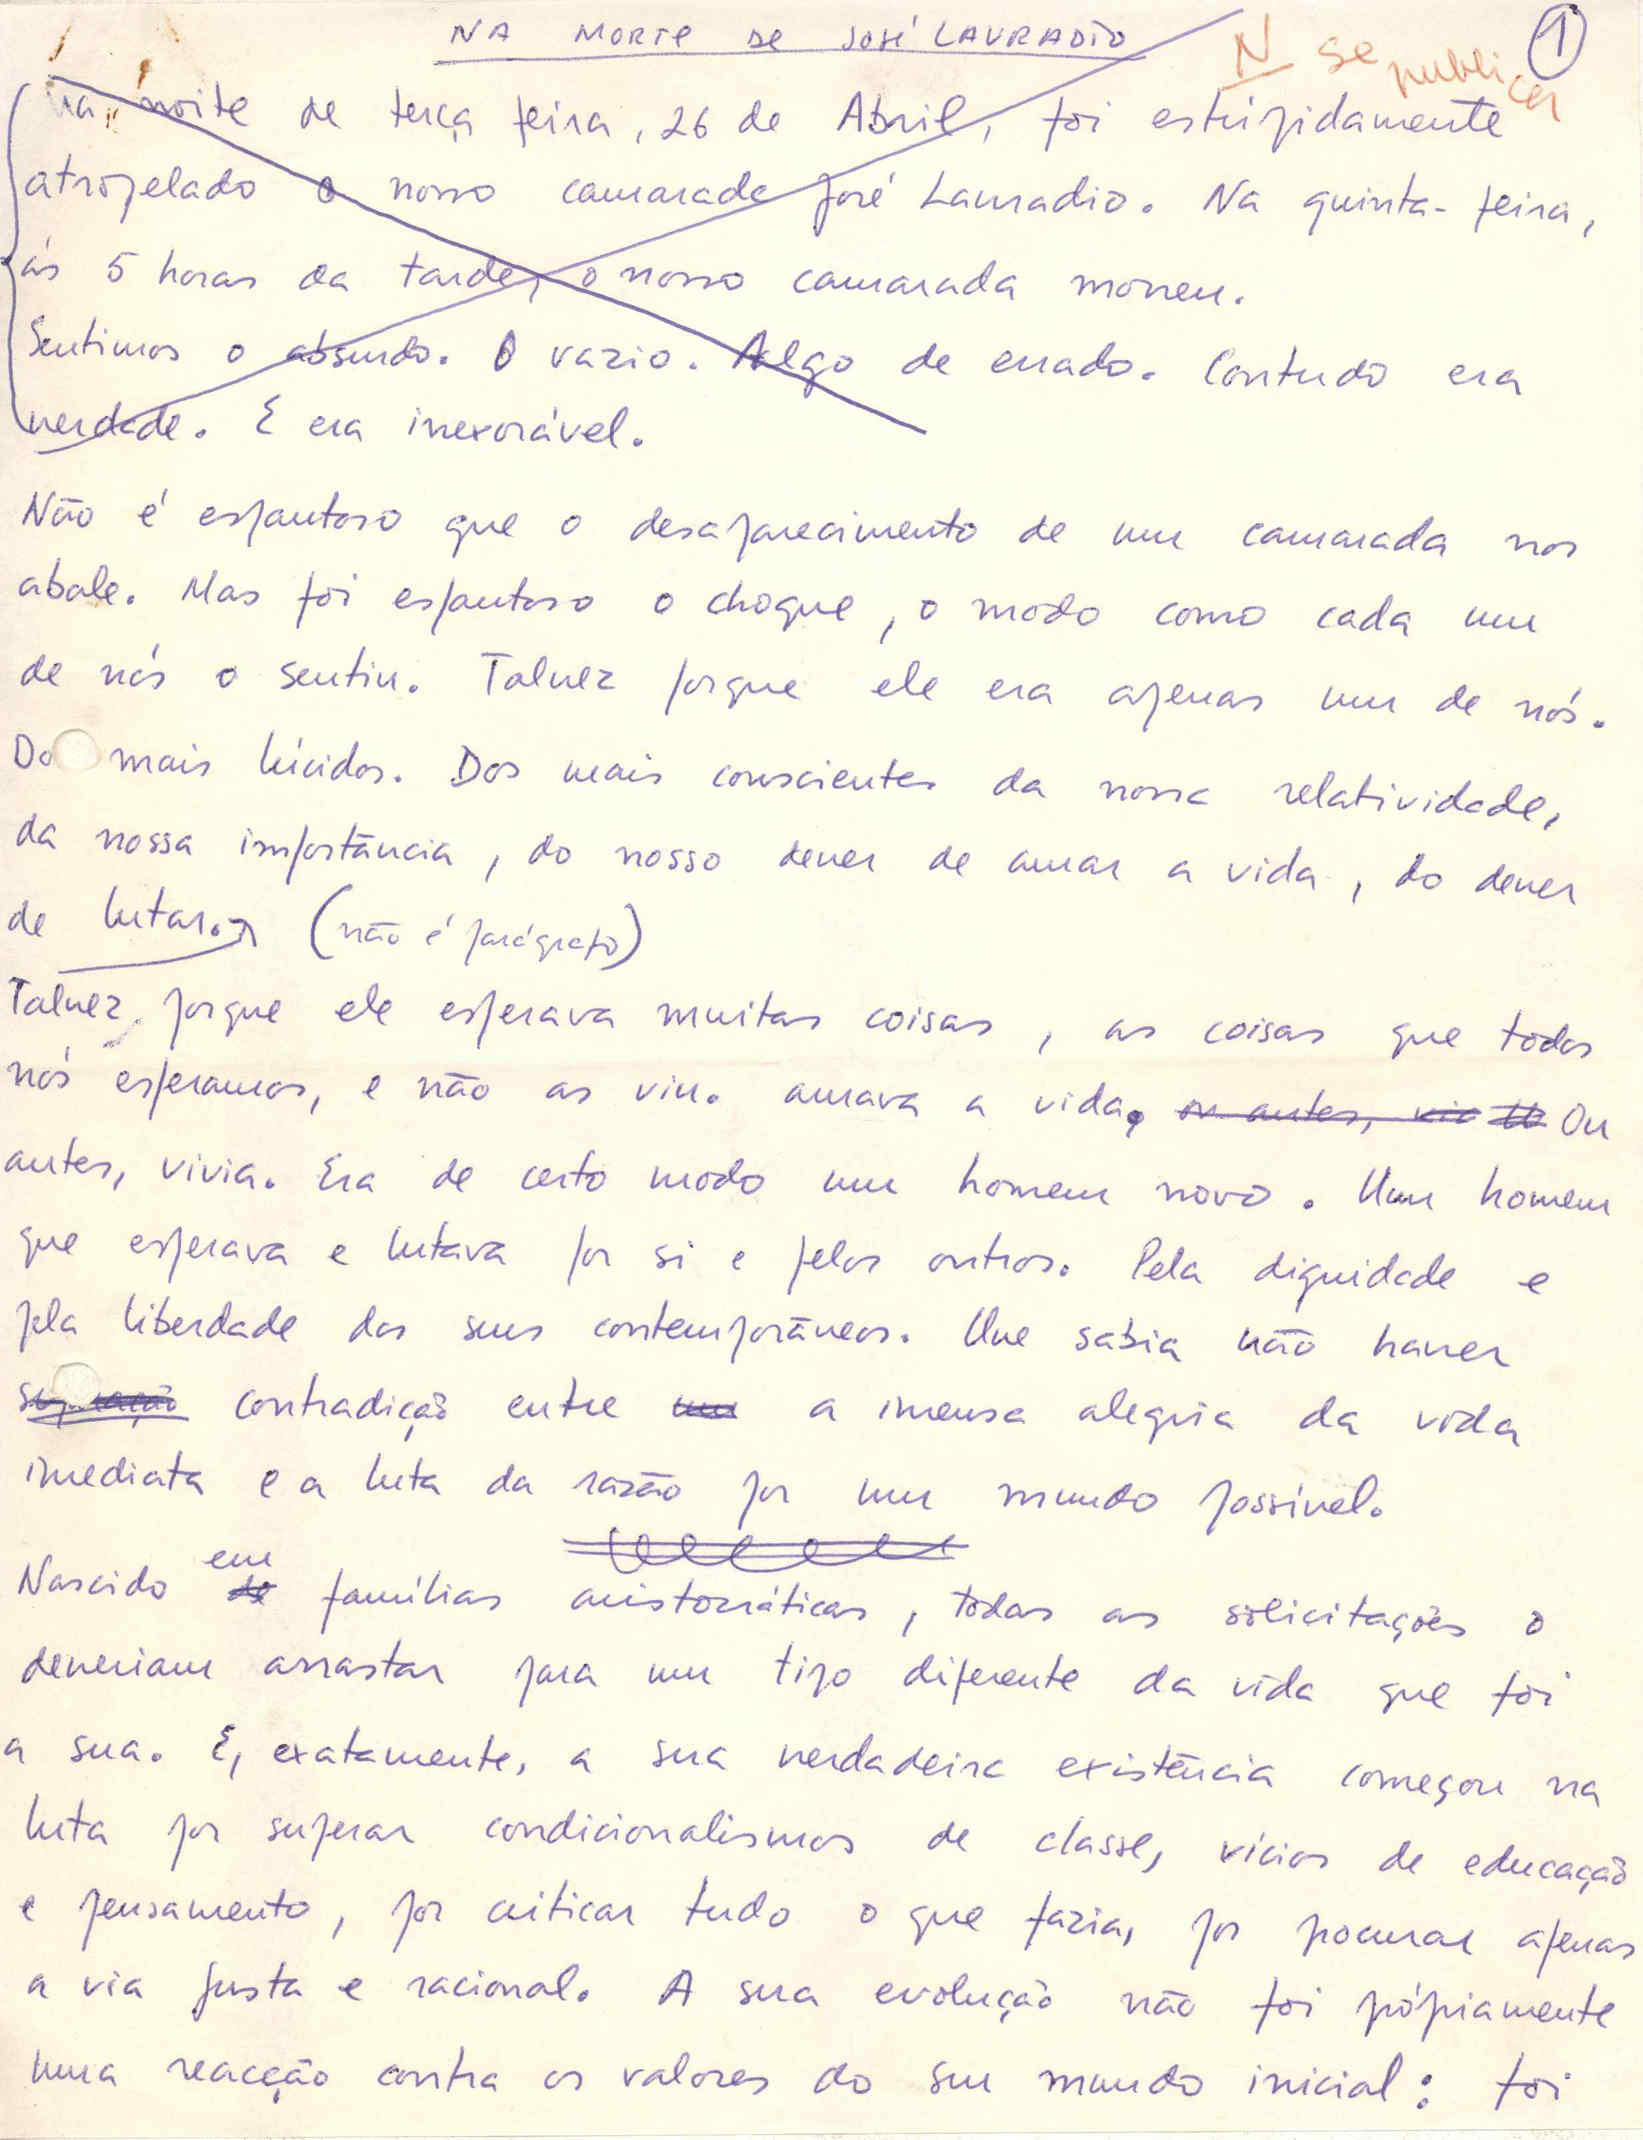 NA MORTE DE JOSÉ LAVRADIO
N se publicar
1
na noite de terça feira, 26 de Abril, foi estúpidamente
atropelado o nosso camarada José Lavradio. Na quinta-feira,
ás 5 horas da tarde, o nosso camarada morreu.
Sentimos o absurdo. O vazio. Algo de errado. Contudo era
verdade. E era inexorável.
Não é espantoso que o desaparecimento de um camarada nos
abale. Mas foi espantoso o choque, o modo como cada um
de nós o sentiu. Talvez porque ele era apenas um de nós.
Do mais lúcidos. Dos mais conscientes da nossa relatividade,
da nossa importância, do nosso dever de amar a vida, do dever
de lutar. (não é parágrafo)
Talvez porque ele esperava muitas coisas, as coisas que todos
nós esperamos, e não as viu. amava a vida, ou antes, Ou
antes, vivia. Era de certo modo um homem novo. Um homem
que esperava e lutava por si e pelos outros. Pela dignidade e
pla liberdade dos seus contemporâneos. Que sabia não haver
contradição entre a imensa alegria da vida
imediata e a luta da razão por um mundo possível.
Nascido em famílias aristocráticas, todas as solicitações o
deveriam arrastar para um tipo diferente da vida que foi
a sua. E, exatamente, a sua verdadeira existência começou na
luta por superar condicionalismos de classe, vícios de educação
e pensamento, por criticar tudo o que fazia, por procurar apenas
a via justa e racional. A sua evolução não foi própiamente
uma reacção contra os valores do seu mundo inicial: foi